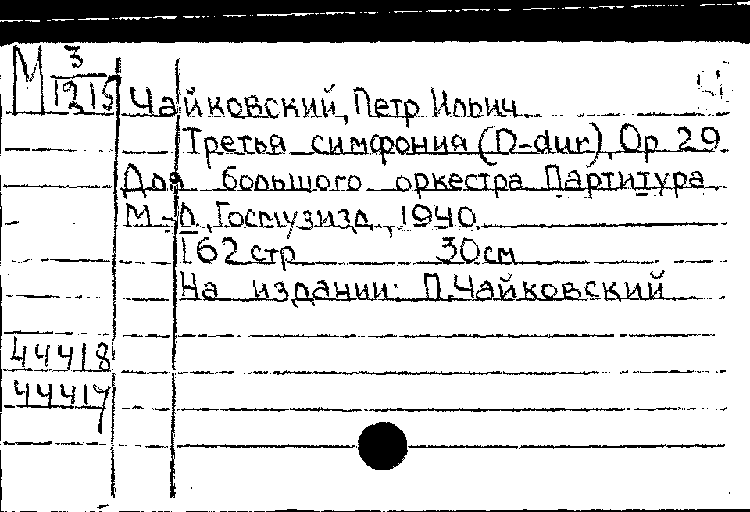 М 3
1215
Чайковский, Петр Ильич
Третья симфония (D-dur), Op 29
Для большого оркестра Партитура
М-Л, Госмузизд, 1940
162 стр 30см
На издании: П. Чайковский
44418
44417